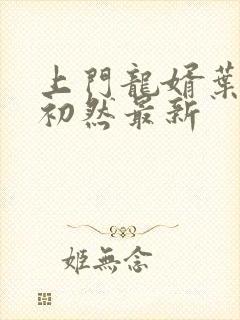 上門龍婿葉
初然最新
姬無念